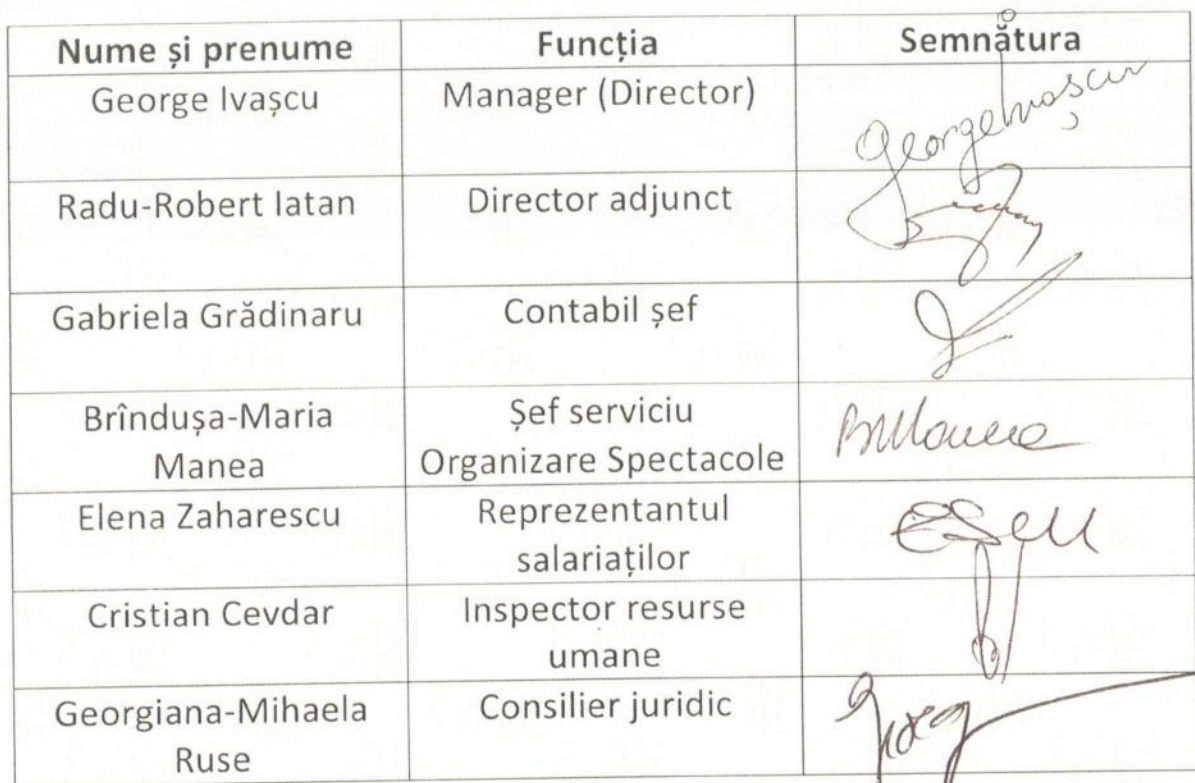 Nume și prenume Funcția Semnătura
George Ivașcu Manager (Director) George Ivașcu
Radu-Robert Iatan Director adjunct
Gabriela Grădinaru Contabil șef
Brîndușa-Maria Manea Șef serviciu Organizare Spectacole BMManea
Elena Zaharescu Reprezentantul salariaților
Cristian Cevdar Inspector resurse umane
Georgiana-Mihaela Ruse Consilier juridic